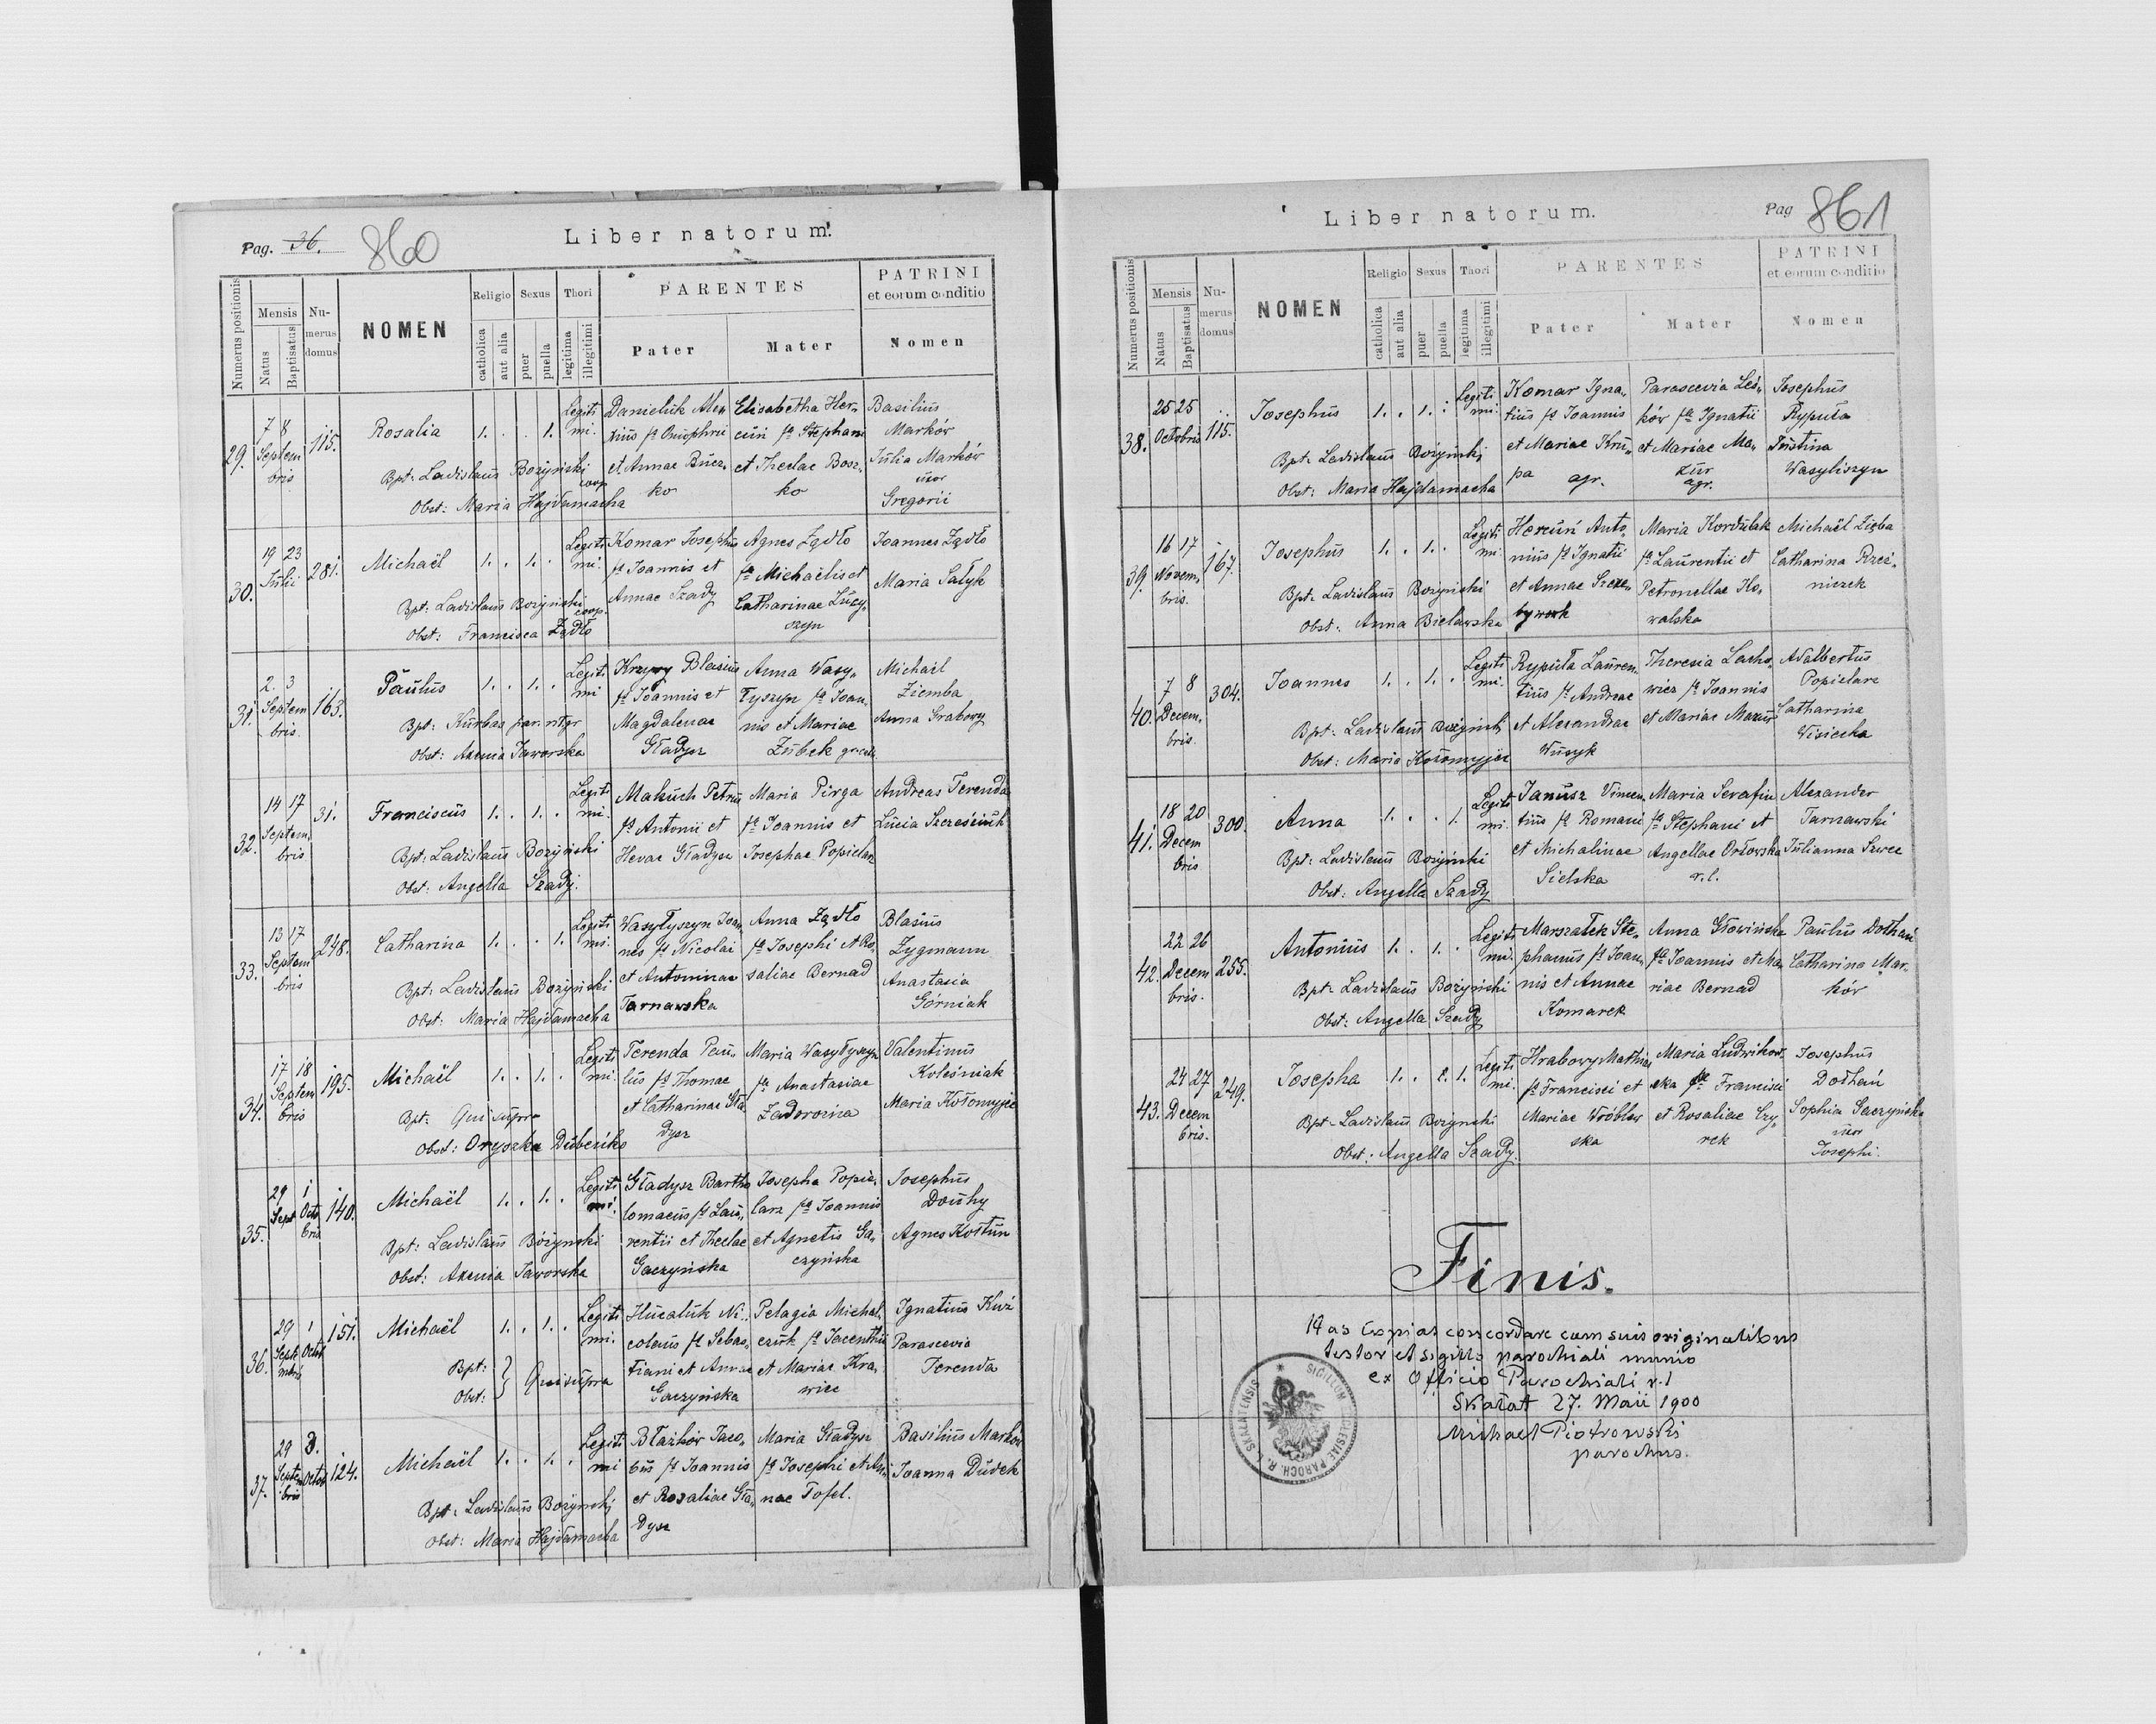 Pag. 36. 860
Liber natorum.
Numerus positionis
Mensis
Natus
Baptisatus
Numerus domus
NOMEN
Religio
catholica
aut alia
Sexus
puer
puella
Thori
legitima
illegitimi
PARENTES
Pater
Mater
PATRINI
et eorum conditio
Nomen
29. 7 8 Septem bris 115. Rosalia 1. . . 1. Legiti mi.
Bpt: Ladislaus Bożyński coop.
Obst: Maria Hajdamacha
Danieluk Ale
xius fs Onuphrii
et Annae Bucz
ko
Elisabetha Her
cuń fa Stephani
et Theclae Bosz
ko
Basilius
Markór
Julia Markór
uxor
Gregorii
30. 19 23 Julii 281. Michaël 1. . 1. . Legiti mi.
Bpt: Ladislaus Bożyński coop.
Obst: Francisca Żądło
Komar Josephus
fs Joannis et
Annae Szady
Agnes Żądło
fa Michaëlis et
Catharinae Łucy
szyn
Joannes Żądło
Maria Sałyk
31. 2. 3 Septem bris. 163. Paulus 1. . 1. . Legiti mi
Bpt: Kurbas par. rit gr
Obst: Axenia Jaworska
Krzywy Blasius
fs Joannis et
Magdalenae
Gładysz
Anna Wasy
łyszyn fa Joan
nis et Mariae
Zubek
Michaël
Ziemba
Anna Grabowy
32. 14 17 Septem bris 31. Franciscus 1. . 1. . Legiti mi.
Bpt: Ladislaus Bożyński
Obst: Angella Szady.
Makuch Petrus
fs Antonii et
Hevae Gładysz
Maria Pirga
fa Joannis et
Josephae Popielarz
Andreas Ferenda
Lucia Szcześniuk
33. 13 17 Septem bris 248. Catharina 1. . . 1. Legiti mi.
Bpt: Ladislaus Bożyński
Obst: Maria Hajdamacha
Wasyłyszyn Joan
nes fs Nicolai
et Antoninae
Tarnawska
Anna Żądło
fa Josephi et Ro
saliae Bernad
Blasius
Zygmunn
Anastasia
Górniak
34. 17 18 Septem bris 195. Michaël 1. . 1. . Legiti mi.
Bpt: Qui supra
Obst: Oryszka Dubczko
Ferenda Pau
lus fs Thomae
et Catharinae Gła
dysz
Maria Wasyłyszyn
fa Anastasiae
Zadorozna
Valentinus
Koleśniak
Maria Kołomyjec
35. 29 Sept 1 Octo bris 140. Michaël 1. . 1. . Legiti mi.
Bpt: Ladislaus Bożynski
Obst: Axenia Jaworska
Gładysz Bartho
lomaeus fs Lau
rentii et Theclae
Gaczyńska
Josepha Popie
larz fa Joannis
et Agnetis Ga
czyńska
Josephus
Douhy
Agnes Kostun
36. 29 Septe mbris 1 Octob 151. Michaël 1. . 1. . Legiti mi.
Bpt: Obst: } Qui supra
Hucaluk Ni
colaus fs Sebas
tiani et Annae
Gaczyńska
Pelagia Michal
czuk fa Jacenthii
et Mariae Kra
wiec
Ignatius Kuź
Parascevia
Ferenda
37. 29 Septem bris 3. Octob 124. Michaël 1. . 1. . Legiti mi
Bpt: Ladislaus Bożynski
Obst: Maria Hajdamacha
Błażków Jaco
bus fs Joannis
et Rosaliae Gła
dysz
Maria Gładysz
fa Josephi et An
nae Tofel.
Basilius Markór
Joanna Dudek
Liber natorum.
Pag 861
Numerus positionis
Mensis
Natus
Baptisatus
Numerus domus
NOMEN
Religio
catholica
aut alia
Sexus
puer
puella
Thori
legitima
illegitimi
PARENTES
Pater
Mater
PATRINI
et eorum conditio
Nomen
38. 25 25 Octobris 115. Josephus 1. . 1. . Legiti mi.
Bpt: Ladislaus Bożynski
Obst: Maria Hajdamacha
Komar Igna
tius fs Joannis
et Mariae Kru
pa agr.
Parascevia Leś
ków fa Ignatii
et Mariae Ma
zur
agr.
Josephus
Ryputa
Justina
Wasyliszyn
39. 16 17 Novem bris. 167. Josephus 1. . 1. . Legiti mi.
Bpt: Ladislaus Bożynski
Obst: Anna Bielawska
Hercuń Anto
nius fs Ignatii
et Annae Szcze
bywoek
Maria Kordulak
fa Laurentii et
Petronellae Ko
walska
Michaël Zięba
Catharina Rzeź
niczek
40. 7 8 Decem bris. 304. Joannes 1. . 1. . Legiti mi.
Bpt: Ladislaus Bożynski
Obst: Maria Kołomyjec
Ryputa Lauren
tius fs Andreae
et Alexandrae
Wusyk
Theresia Lacho
wicz fa Joannis
et Mariae Mazur
Adalbertus
Popielarz
Catharina
Wisiecka
41. 18 20 Decem bris 300. Anna 1. . . 1. Legiti mi.
Bpt: Ladislaus Bożyński
Obst: Angella Szady
Janusz Vincen
tius fs Romani
et Michalinae
Sielska
Maria Serafin
fa Stephani et
Angellae Orłowska
r.l.
Alexander
Tarnawski
Julianna Szwec
42. 22 26 Decem bris. 255. Antonius 1. . 1. . Legiti mi.
Bpt: Ladislaus Bożyński
Obst: Angella Szady
Marszałek Ste
phanus fs Joan
nis et Annae
Komarek
Anna Głowińska
fa Joannis et Ma
riae Bernad
Paulus Dołhań
Catharina Mar
kór
43. 24 27 Decem bris. 249. Josepha 1. . . 1. Legiti mi.
Bpt: Ladislaus Bożynski
Obst: Angella Szady.
Hrabowy Mathias
fs Francisci et
Mariae Wróblew
ska
Maria Ludwikow
ska fa Francisci
et Rosaliae Czy
rek
Josephus
Dołhań
Sophia Gaczyńska
uxor
Josephi.
Finis.
Has Copias concordare cum suis originalibus
testor et sigillo parochiali munio
ex Officio Parochiali r.l
Skałat 27. Maii 1900
Michael Piotrowski
parochus.
SIGILLUM ECCLESIAE PAROCH. R. L. SKALATENSIS